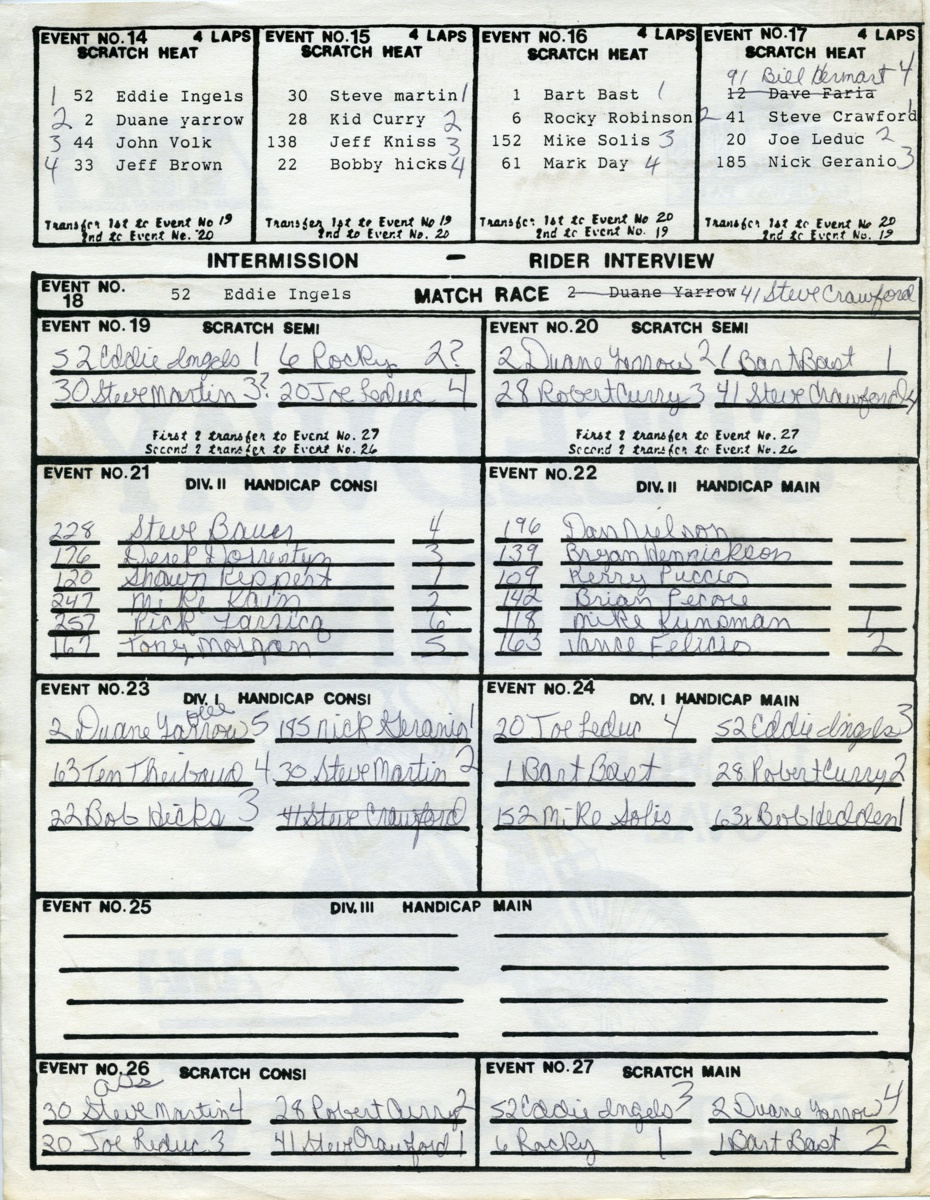 EVENT NO.14 4 LAPS
SCRATCH HEAT
1 52 Eddie Ingels
2 2 Duane yarrow
3 44 John Volk
4 33 Jeff Brown
Transfer 1st to Event No 19
2nd to Event No. 20
EVENT NO.15 4 LAPS
SCRATCH HEAT
30 Steve martin 1
28 Kid Curry 2
138 Jeff Kniss 3
22 Bobby hicks 4
Transfer 1st to Event No 19
2nd to Event No. 20
EVENT NO.16 4 LAPS
SCRATCH HEAT
1 Bart Bast 1
6 Rocky Robinson 2
152 Mike Solis 3
61 Mark Day 4
Transfer 1st to Event No 20
2nd to Event No. 19
EVENT NO.17 4 LAPS
SCRATCH HEAT
91 Bill Hermant 4
12 Dave Faria
41 Steve Crawford 1
20 Joe Leduc 2
185 Nick Geranio 3
Transfer 1st to Event No 20
2nd to Event No. 19
INTERMISSION - RIDER INTERVIEW
EVENT NO. 18 52 Eddie Ingels MATCH RACE 2 Duane Yarrow 41 Steve Crawford
EVENT NO.19 SCRATCH SEMI
52 Eddie Ingels 1 6 Rocky 2?
30 Steve Martin 3? 20 Joe Leduc 4
First 2 transfer to Event No. 27
Second 2 transfer to Event No. 26
EVENT NO.20 SCRATCH SEMI
2 Duane Yarrow 2 1 Bart Bast 1
28 Robert Curry 3 41 Steve Crawford 4
First 2 transfer to Event No. 27
Second 2 transfer to Event No. 26
EVENT NO.21
DIV. II HANDICAP CONSI
228 Steve Bauer 4
176 Derek Dorrestyn 3
120 Shawn Reppert 1
247 Mike Khim 2
257 Rick 6
167 Tony Morgan 5
EVENT NO.22
DIV. II HANDICAP MAIN
196 Dan Nielson
139 Bryan Hennickson
109 Kerry Puccio
142 Brian Pecore
118 Mike Kunsman 1
163 Vance Felicio 2
EVENT NO.23
DIV. I HANDICAP CONSI
2 Duane Yarrow 5 185 Nick Geranio 1
63 Ten Theibaud 4 30 Steve Martin 2
22 Bob Hicks 3 41 Steve Crawford
EVENT NO.24
DIV. I HANDICAP MAIN
20 Joe Leduc 4 52 Eddie Ingels 3
1 Bart Bast 28 Robert Curry 2
152 Mike Solis 63x Bob Hedden 1
EVENT NO.25 DIV. III HANDICAP MAIN
EVENT NO.26 SCRATCH CONSI
30 Steve Martin 4 28 Robert Curry 2
20 Joe Leduc 3 41 Steve Crawford 1
EVENT NO.27 SCRATCH MAIN
52 Eddie Ingels 3 2 Duane Yarrow 4
6 Rocky 1 1 Bart Bast 2